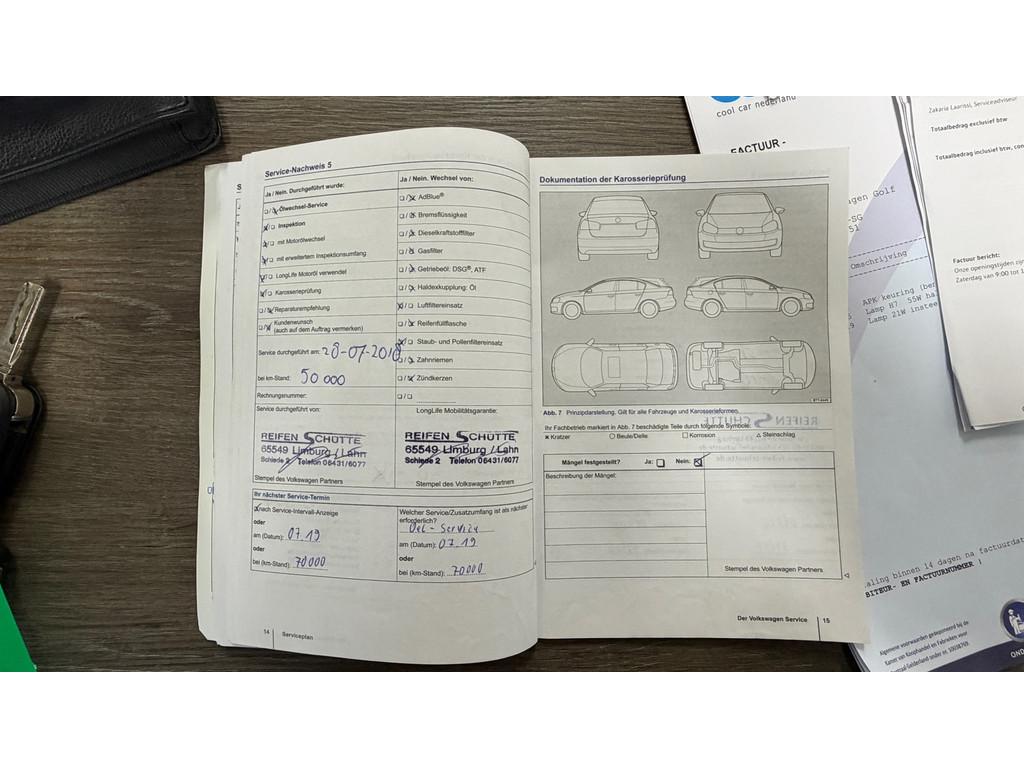 Service-Nachweis 5
Ja / Nein. Durchgeführt wurde:
Ölwechsel-Service
Inspektion
mit Motorölwechsel
mit erweitertem Inspektionsumfang
LongLife Motoröl verwendet
Karosserieprüfung
Reparaturempfehlung
Kundenwunsch
(auch auf dem Auftrag vermerken)
Service durchgeführt am: 28-07-2018
bei km-Stand: 50 000
Rechnungsnummer:
Service durchgeführt von:
REIFEN SCHÜTTE
65549 Limburg / Lahn
Schiede 2 Telefon 06431/6077
Stempel des Volkswagen Partners
Ja / Nein. Wechsel von:
AdBlue®
Bremsflüssigkeit
Dieselkraftstofffilter
Gasfilter
Getriebeöl: DSG®, ATF
Haldexkupplung: Öl
Luftfiltereinsatz
Reifenfüllflasche
Staub- und Pollenfiltereinsatz
Zahnriemen
Zündkerzen
LongLife Mobilitätsgarantie:
REIFEN SCHÜTTE
65549 Limburg / Lahn
Schiede 2 Telefon 06431/6077
Stempel des Volkswagen Partners
Ihr nächster Service-Termin
nach Service-Intervall-Anzeige
oder
am (Datum): 07.19
oder
bei (km-Stand): 70000
Welcher Service/Zusatzumfang ist als nächster
erforderlich?
Oel-Service
am (Datum): 07.19
oder
bei (km-Stand): 70000
14 Serviceplan
Dokumentation der Karosserieprüfung
Abb. 7 Prinzipdarstellung. Gilt für alle Fahrzeuge und Karosserieformen.
Ihr Fachbetrieb markiert in Abb. 7 beschädigte Teile durch folgende Symbole:
Kratzer Beule/Delle Korrosion Steinschlag
Mängel festgestellt? Ja: Nein:
Beschreibung der Mängel:
Stempel des Volkswagen Partners
Der Volkswagen Service 15
cool car nederland
FACTUUR -
agen Golf
-SG
51
Omschrijving
APK/keuring (ber
Lamp H7 55W ha
Lamp 21W instee
aling binnen 14 dagen na factuurdat
BITEUR- EN FACTUURNUMMER )
Algemene voorwaarden gedeponeerd bij de
Kamer van Koophandel en Fabrieken voor
OND
Zakaria Laarissi, Serviceadviseur
Totaalbedrag exclusief btw
Totaalbedrag inclusief btw, con
Factuur bericht:
Onze openingstijden zijn
Zaterdag van 9:00 tot 1